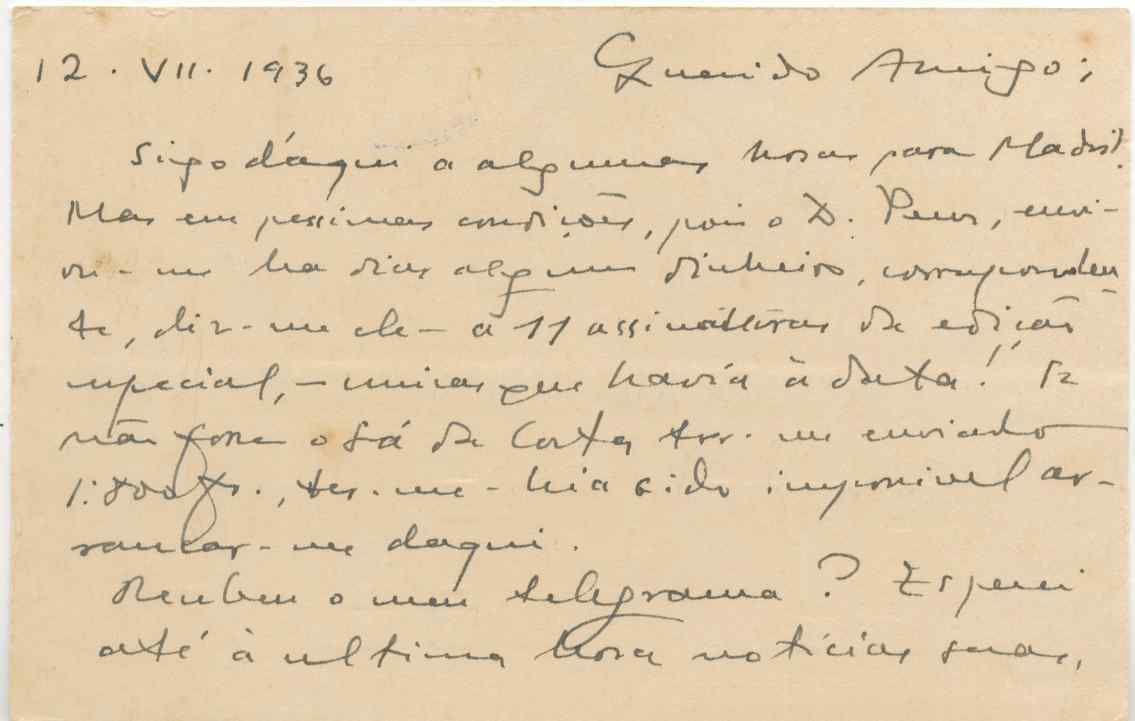 12 . VII . 1936 Querido Amigo:
Sigo d'áqui a algumas horas para Madrid.
Mas em pessimas condições, pois o D. Peres, envi-
ou-me ha dias algum dinheiro, corresponden-
te, diz-me ele - a 11 assinaturas da edição
especial, - unicas que havia à data! Se
não fosse o Sá da Costa ter-me enviado
1:800 fr., ter-me-hia sido impossivel ar-
rancar-me daqui.
Recebeu o meu telegrama? Esperei
até à ultima hora notícias suas,